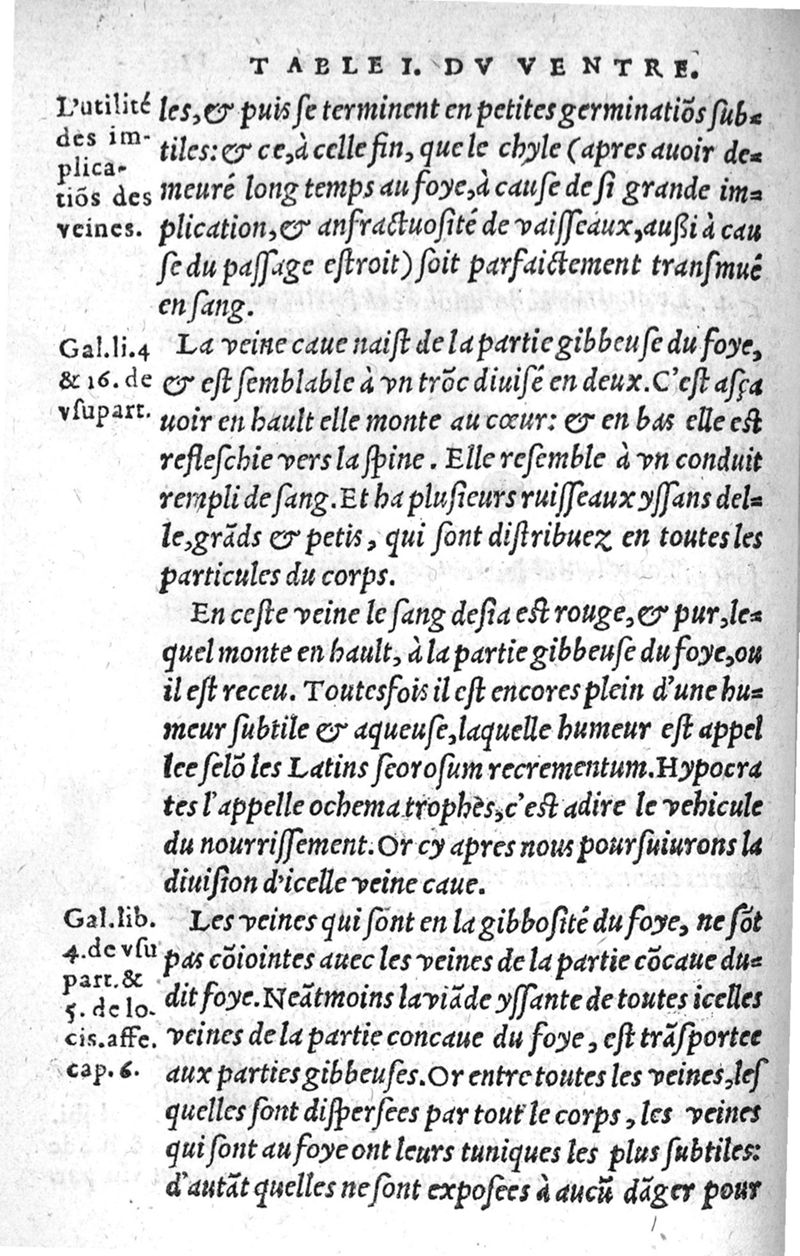 TABLE I. DV VENTRE.
L'utilité
des im-
plica-
tiõs des
veines.
les, & puis se terminent en petites germinatiõs sub-
tiles: & ce, à celle fin, que le chyle (apres auoir de-
meuré long temps au foye, à cause de si grande im-
plication, & anfractuosité de vaisseaux, außi à cau
se du passage estroit) soit parfaictement transmué
en sang.
Gal.li.4
& 16. de
vsupart.
La veine caue naist de la partie gibbeuse du foye,
& est semblable à vn trõc diuisé en deux. C'est asça
uoir en hault elle monte au cœur: & en bas elle est
refleschie vers la spine. Elle resemble à vn conduit
rempli de sang. Et ha plusieurs ruisseaux yssans del-
le, grãds & petis, qui sont distribuez en toutes les
particules du corps.
En ceste veine le sang desia est rouge, & pur, le-
quel monte en hault, à la partie gibbeuse du foye, ou
il est receu. Toutesfois il est encores plein d'une hu-
meur subtile & aqueuse, laquelle humeur est appel
lee selõ les Latins seorosum recrementum. Hypocra
tes l'appelle ochema trophès, c'est adire le vehicule
du nourrissement. Or cy apres nous poursuiurons la
diuision d'icelle veine caue.
Gal.lib.
4.de vsu
part.&
5. de lo-
cis.affe.
cap. 6.
Les veines qui sont en la gibbosité du foye, ne sõt
pas cõiointes auec les veines de la partie cõcaue du-
dit foye. Neãtmoins la viãde yssante de toutes icelles
veines de la partie concaue du foye, est trãsportee
aux parties gibbeuses. Or entre toutes les veines, les
quelles sont dispersees par tout le corps, les veines
qui sont au foye ont leurs tuniques les plus subtiles:
d'autãt quelles ne sont exposées à aucũ dãger pour